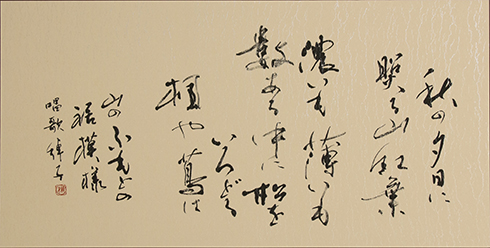 秋の夕日に
照る山紅葉
濃いも薄いも
数ある中に松を
いろどる
楓や蔦は
山のふもとの
裾模様
唱歌